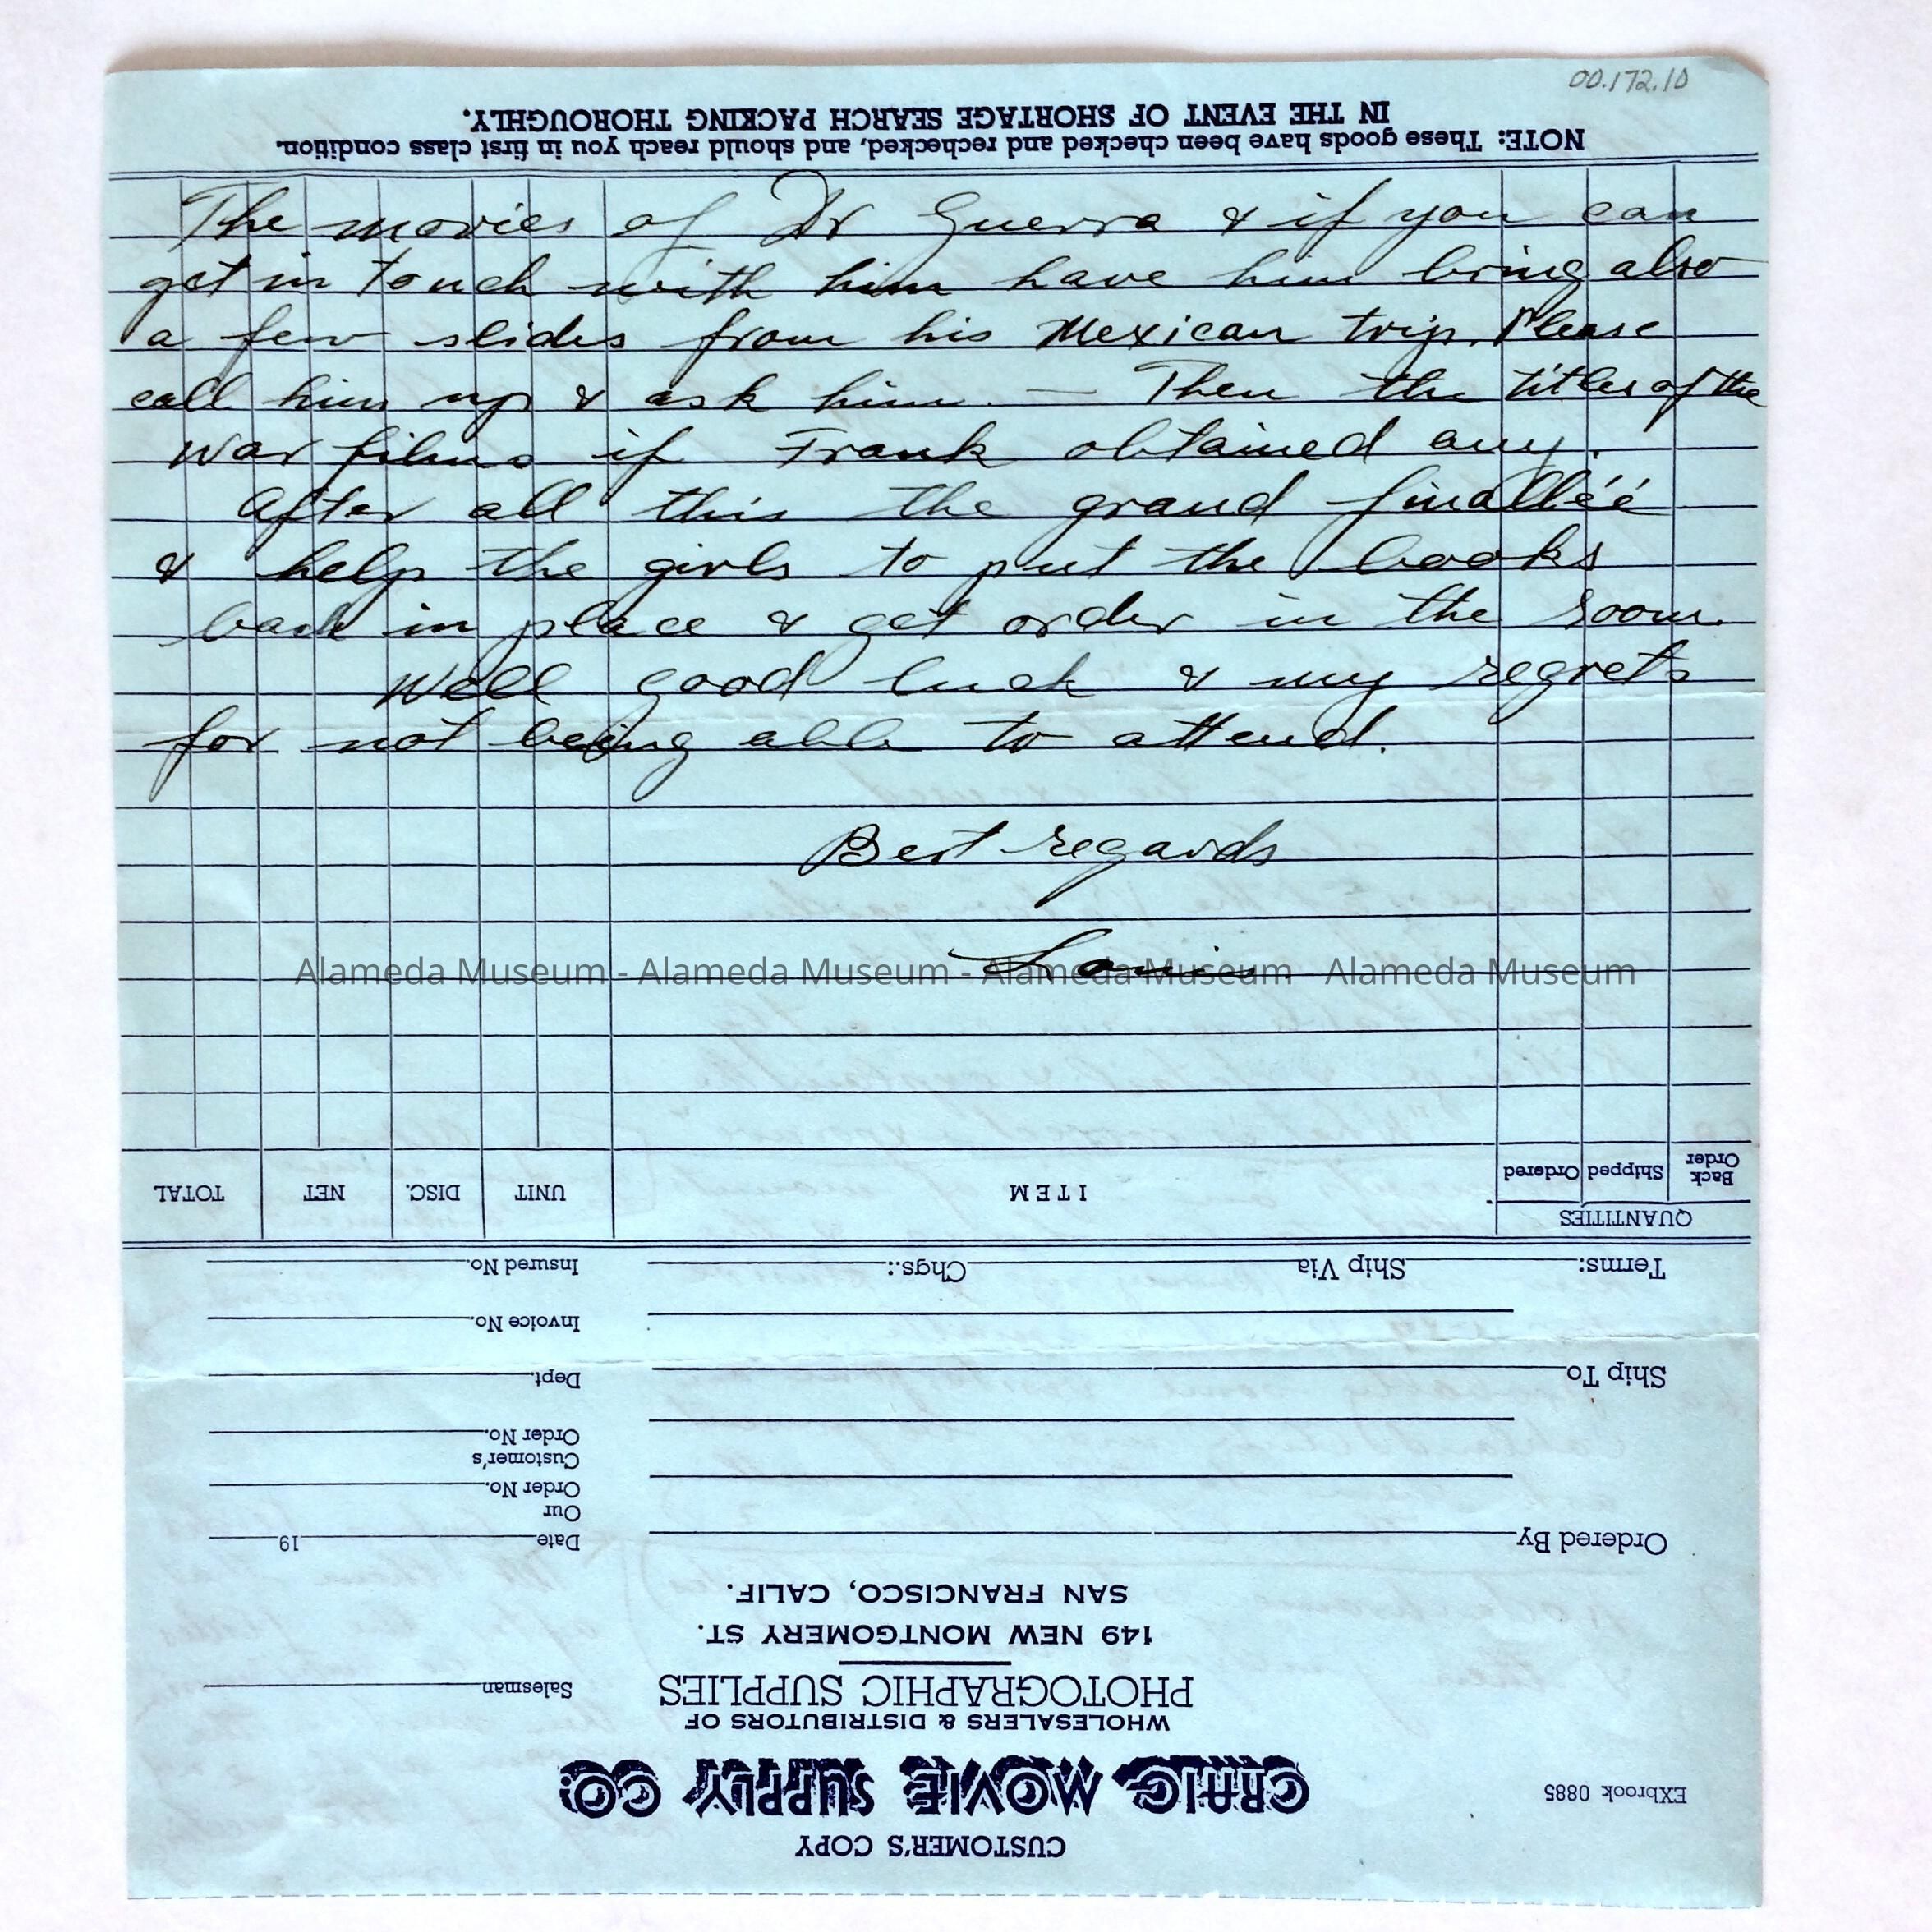 00.172.10
The movies of Dr Guerra & if you can
get in touch with him have him bring also
a few slides from his Mexican trip. Please
call him up & ask him. — Then the titles of the
war films if Frank obtained any.
After all this the grand finalléé
& help the girls to put the books
back in place & get order in the room.
Well good luck & my regrets
for not being able to attend.
Best regards
Louis.
Alameda Museum - Alameda Museum - Alameda Museum - Alameda Museum
CUSTOMER'S COPY
EXbrook 0885
CRAIG MOVIE SUPPLY CO.
WHOLESALERS & DISTRIBUTORS OF
PHOTOGRAPHIC SUPPLIES
Salesman
149 NEW MONTGOMERY ST.
SAN FRANCISCO, CALIF.
Ordered By
Date 19
Our
Order No.
Customer's
Order No.
Ship To
Dept.
Invoice No.
Terms: Ship Via Chgs.:
Insured No.
QUANTITIES
Back
Order Shipped Ordered
ITEM UNIT DISC. NET TOTAL
NOTE: These goods have been checked and rechecked, and should reach you in first class condition.
IN THE EVENT OF SHORTAGE SEARCH PACKING THOROUGHLY.